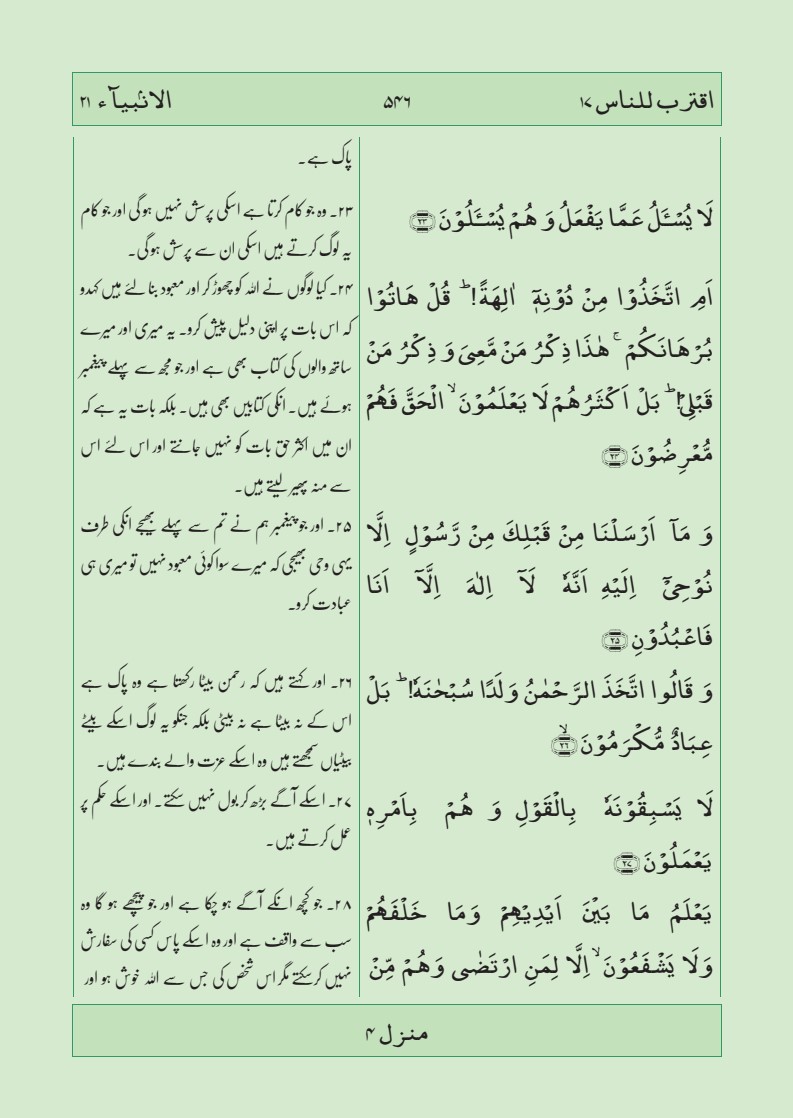 اقترب للناس ۱۷
۵۴۶
الانبیآء ۲۱
لَا یُسْـَٔلُ عَمَّا یَفْعَلُ وَ هُمْ یُسْـَٔلُوْنَ ﴿۲۳﴾
اَمِ اتَّخَذُوْا مِنْ دُوْنِهٖۤ اٰلِهَةً ؕ قُلْ هَاتُوْا
بُرْهَانَكُمْ ۚ هٰذَا ذِكْرُ مَنْ مَّعِیَ وَ ذِكْرُ مَنْ
قَبْلِیْ ؕ بَلْ اَكْثَرُهُمْ لَا یَعْلَمُوْنَ ۙ الْحَقَّ فَهُمْ
مُّعْرِضُوْنَ ﴿۲۴﴾
وَ مَاۤ اَرْسَلْنَا مِنْ قَبْلِكَ مِنْ رَّسُوْلٍ اِلَّا
نُوْحِیْۤ اِلَیْهِ اَنَّهٗ لَاۤ اِلٰهَ اِلَّاۤ اَنَا
فَاعْبُدُوْنِ ﴿۲۵﴾
وَ قَالُوا اتَّخَذَ الرَّحْمٰنُ وَلَدًا سُبْحٰنَهٗ ؕ بَلْ
عِبَادٌ مُّكْرَمُوْنَ ﴿۲۶﴾ ۙ
لَا یَسْبِقُوْنَهٗ بِالْقَوْلِ وَ هُمْ بِاَمْرِهٖ
یَعْمَلُوْنَ ﴿۲۷﴾
یَعْلَمُ مَا بَیْنَ اَیْدِیْهِمْ وَمَا خَلْفَهُمْ
وَلَا یَشْفَعُوْنَ ۙ اِلَّا لِمَنِ ارْتَضٰی وَهُمْ مِّنْ
پاک ہے۔
۲۳۔ وہ جو کام کرتا ہے اسکی پرسش نہیں ہوگی اور جو کام
یہ لوگ کرتے ہیں اسکی ان سے پرسش ہوگی۔
۲۴۔ کیا لوگوں نے اللہ کو چھوڑ کر اور معبود بنا لئے ہیں کہدو
کہ اس بات پر اپنی دلیل پیش کرو۔ یہ میری اور میرے
ساتھ والوں کی کتاب بھی ہے اور جو مجھ سے پہلے پیغمبر
ہوئے ہیں۔ انکی کتابیں بھی ہیں۔ بلکہ بات یہ ہے کہ
ان میں اکثر حق بات کو نہیں جانتے اور اس لئے اس
سے منہ پھیر لیتے ہیں۔
۲۵۔ اور جو پیغمبر ہم نے تم سے پہلے بھیجے انکی طرف
یہی وحی بھیجی کہ میرے سوا کوئی معبود نہیں تو میری ہی
عبادت کرو۔
۲۶۔ اور کہتے ہیں کہ رحمن بیٹا رکھتا ہے وہ پاک ہے
اس کے نہ بیٹا ہے نہ بیٹی بلکہ جنکو یہ لوگ اسکے بیٹے
بیٹیاں سمجھتے ہیں وہ اسکے عزت والے بندے ہیں۔
۲۷۔ اسکے آگے بڑھ کر بول نہیں سکتے۔ اور اسکے حکم پر
عمل کرتے ہیں۔
۲۸۔ جو کچھ انکے آگے ہو چکا ہے اور جو پیچھے ہو گا وہ
سب سے واقف ہے اور وہ اسکے پاس کسی کی سفارش
نہیں کرسکتے مگر اس شخص کی جس سے اللہ خوش ہو اور
منزل ۴